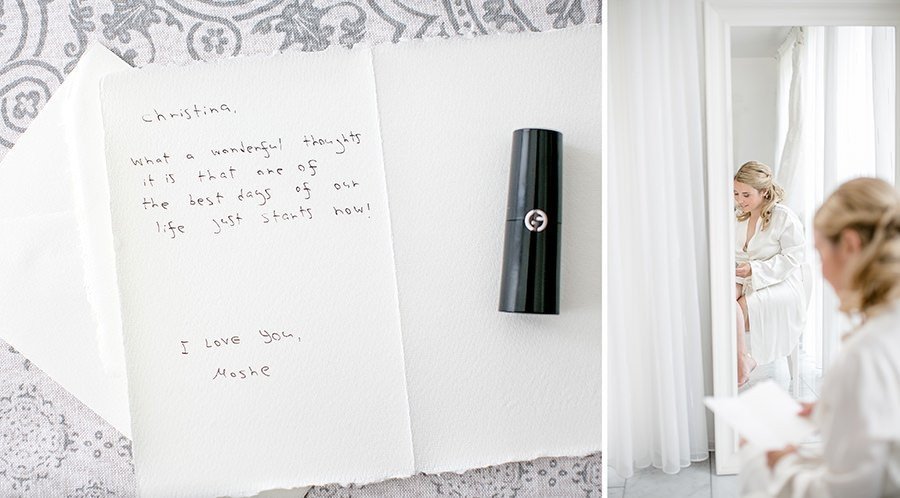 christina,
what a wonderful thoughts
it is that one of
the best days of our
life just starts now!
I LOVE YOU,
Moshe